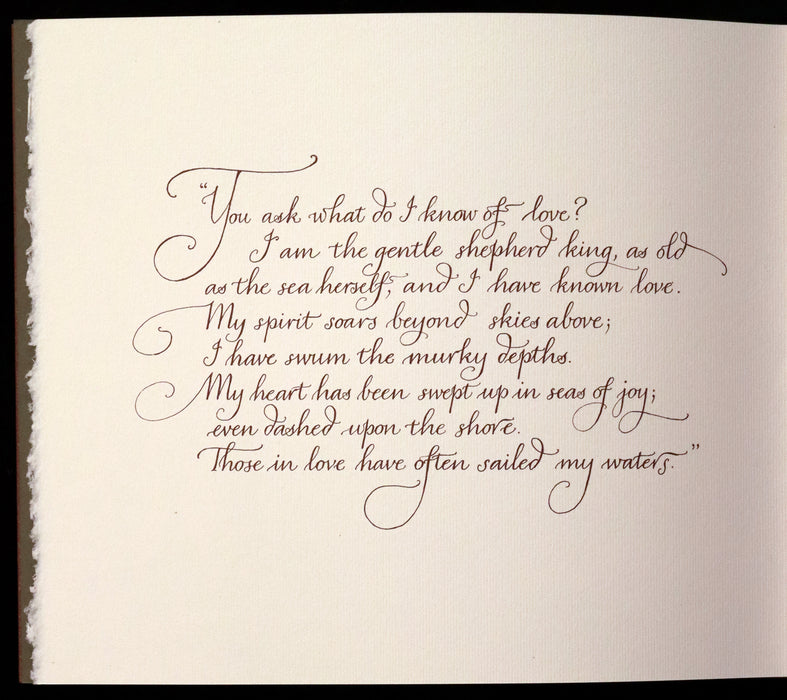 “You ask what do I know of love?
I am the gentle shepherd king, as old
as the sea herself, and I have known love.
My spirit soars beyond skies above;
I have swum the murky depths.
My heart has been swept up in seas of joy;
even dashed upon the shore.
Those in love have often sailed my waters.”